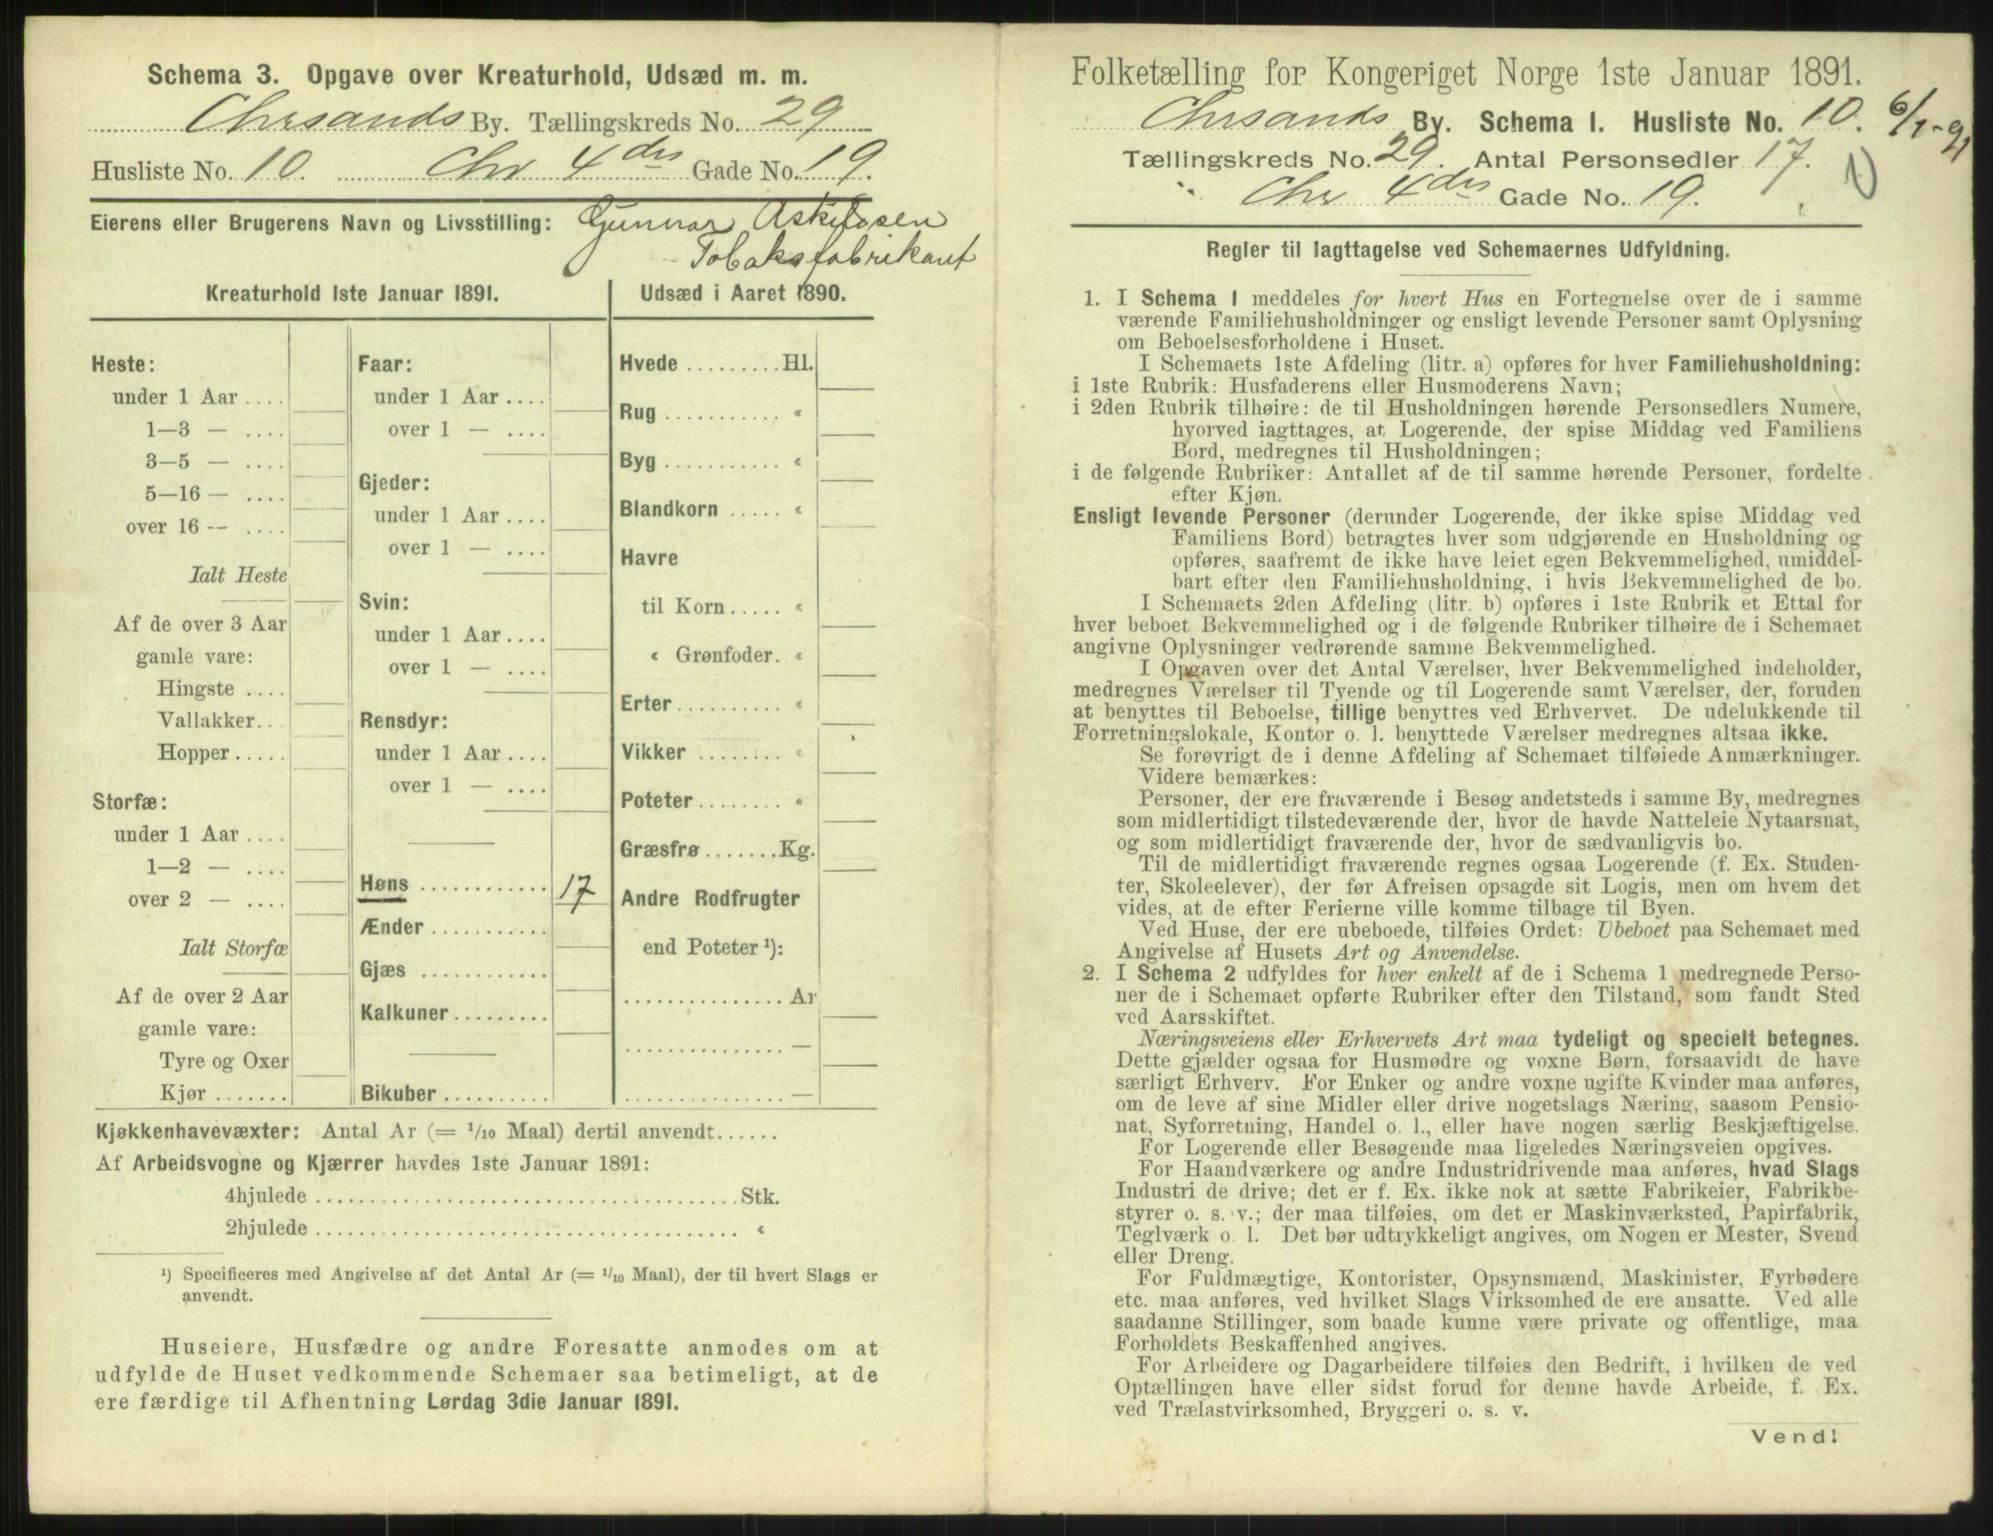 Schema 3. Opgave over Kreaturhold, Udsæd m. m.
Chrsands By. Tællingskreds No. 29
Husliste No. 10. Chr 4des Gade No. 19.
Eierens eller Brugerens Navn og Livsstilling: Gunnar Askildsen
Tobaksfabrikant
Kreaturhold 1ste Januar 1891.
Heste:
under 1 Aar ....
1—3 — ....
3—5 — ....
5—16 — ....
over 16 -- ....
Ialt Heste
Af de over 3 Aar
gamle vare:
Hingste ....
Vallakker...
Hopper.....
Storfæ:
under 1 Aar ....
1—2 — ....
over 2 — ....
Ialt Storfæ
Af de over 2 Aar
gamle vare:
Tyre og Oxer
Kjør .......
Faar:
under 1 Aar ....
over 1 — ....
Gjeder:
under 1 Aar ....
over 1 — ....
Svin:
under 1 Aar ....
over 1 — ....
Rensdyr:
under 1 Aar ....
over 1 — ....
Høns ............ 17
Ænder ...........
Gjæs ............
Kalkuner.........
Bikuber ..........
Udsæd i Aaret 1890.
Hvede .........Hl.
Rug ........... «
Byg ........... «
Blandkorn ..... «
Havre
til Korn..... «
« Grønfoder. «
Erter.......... «
Vikker ........ «
Poteter........ «
Græsfrø.......Kg.
Andre Rodfrugter
end Poteter ¹):
............... Ar
............... —
............... —
Kjøkkenhavevæxter: Antal Ar (= 1/10 Maal) dertil anvendt......
Af Arbeidsvogne og Kjærrer havdes 1ste Januar 1891:
4hjulede ........................................Stk.
2hjulede ........................................ «
¹) Specificeres med Angivelse af det Antal Ar (= 1/10 Maal), der til hvert Slags er
anvendt.
Huseiere, Husfædre og andre Foresatte anmodes om at
udfylde de Huset vedkommende Schemaer saa betimeligt, at de
ere færdige til Afhentning Lørdag 3die Januar 1891.
Folketælling for Kongeriget Norge 1ste Januar 1891.
Chrsands By. Schema I. Husliste No. 10. 6/1-91
Tællingskreds No. 29. Antal Personsedler 17.
Chr 4des Gade No. 19.
Regler til Iagttagelse ved Schemaernes Udfyldning.
1. I Schema I meddeles for hvert Hus en Fortegnelse over de i samme
værende Familiehusholdninger og ensligt levende Personer samt Oplysning
om Beboelsesforholdene i Huset.
I Schemaets 1ste Afdeling (litr. a) opføres for hver Familiehusholdning:
i 1ste Rubrik: Husfaderens eller Husmoderens Navn;
i 2den Rubrik tilhøire: de til Husholdningen hørende Personsedlers Numere,
hvorved iagttages, at Logerende, der spise Middag ved Familiens
Bord, medregnes til Husholdningen;
i de følgende Rubriker: Antallet af de til samme hørende Personer, fordelte
efter Kjøn.
Ensligt levende Personer (derunder Logerende, der ikke spise Middag ved
Familiens Bord) betragtes hver som udgjørende en Husholdning og
opføres, saafremt de ikke have leiet egen Bekvemmelighed, umiddel-
bart efter den Familiehusholdning, i hvis Bekvemmelighed de bo.
I Schemaets 2den Afdeling (litr. b) opføres i 1ste Rubrik et Ettal for
hver beboet Bekvemmelighed og i de følgende Rubriker tilhøire de i Schemaet
angivne Oplysninger vedrørende samme Bekvemmelighed.
I Opgaven over det Antal Værelser, hver Bekvemmelighed indeholder,
medregnes Værelser til Tyende og til Logerende samt Værelser, der, foruden
at benyttes til Beboelse, tillige benyttes ved Erhvervet. De udelukkende til
Forretningslokale, Kontor o. l. benyttede Værelser medregnes altsaa ikke.
Se forøvrigt de i denne Afdeling af Schemaet tilføiede Anmærkninger.
Videre bemærkes:
Personer, der ere fraværende i Besøg andetsteds i samme By, medregnes
som midlertidigt tilstedeværende der, hvor de havde Natteleie Nytaarsnat,
og som midlertidigt fraværende der, hvor de sædvanligvis bo.
Til de midlertidigt fraværende regnes ogsaa Logerende (f. Ex. Studen-
ter, Skoleelever), der før Afreisen opsagde sit Logis, men om hvem det
vides, at de efter Ferierne ville komme tilbage til Byen.
Ved Huse, der ere ubeboede, tilføies Ordet: Ubeboet paa Schemaet med
Angivelse af Husets Art og Anvendelse.
2. I Schema 2 udfyldes for hver enkelt af de i Schema 1 medregnede Perso-
ner de i Schemaet opførte Rubriker efter den Tilstand, som fandt Sted
ved Aarsskiftet.
Næringsveiens eller Erhvervets Art maa tydeligt og specielt betegnes.
Dette gjælder ogsaa for Husmødre og voxne Børn, forsaavidt de have
særligt Erhverv. For Enker og andre voxne ugifte Kvinder maa anføres,
om de leve af sine Midler eller drive nogetslags Næring, saasom Pensio-
nat, Syforretning, Handel o. l., eller have nogen særlig Beskjæftigelse.
For Logerende eller Besøgende maa ligeledes Næringsveien opgives.
For Haandværkere og andre Industridrivende maa anføres, hvad Slags
Industri de drive; det er f. Ex. ikke nok at sætte Fabrikeier, Fabrikbe-
styrer o. s. v.; der maa tilføies, om det er Maskinværksted, Papirfabrik,
Teglværk o. l. Det bør udtrykkeligt angives, om Nogen er Mester, Svend
eller Dreng.
For Fuldmægtige, Kontorister, Opsynsmænd, Maskinister, Fyrbødere
etc. maa anføres, ved hvilket Slags Virksomhed de ere ansatte. Ved alle
saadanne Stillinger, som baade kunne være private og offentlige, maa
Forholdets Beskaffenhed angives.
For Arbeidere og Dagarbeidere tilføies den Bedrift, i hvilken de ved
Optællingen have eller sidst forud for denne havde Arbeide, f. Ex.
ved Trælastvirksomhed, Bryggeri o. s. v.
Vend!